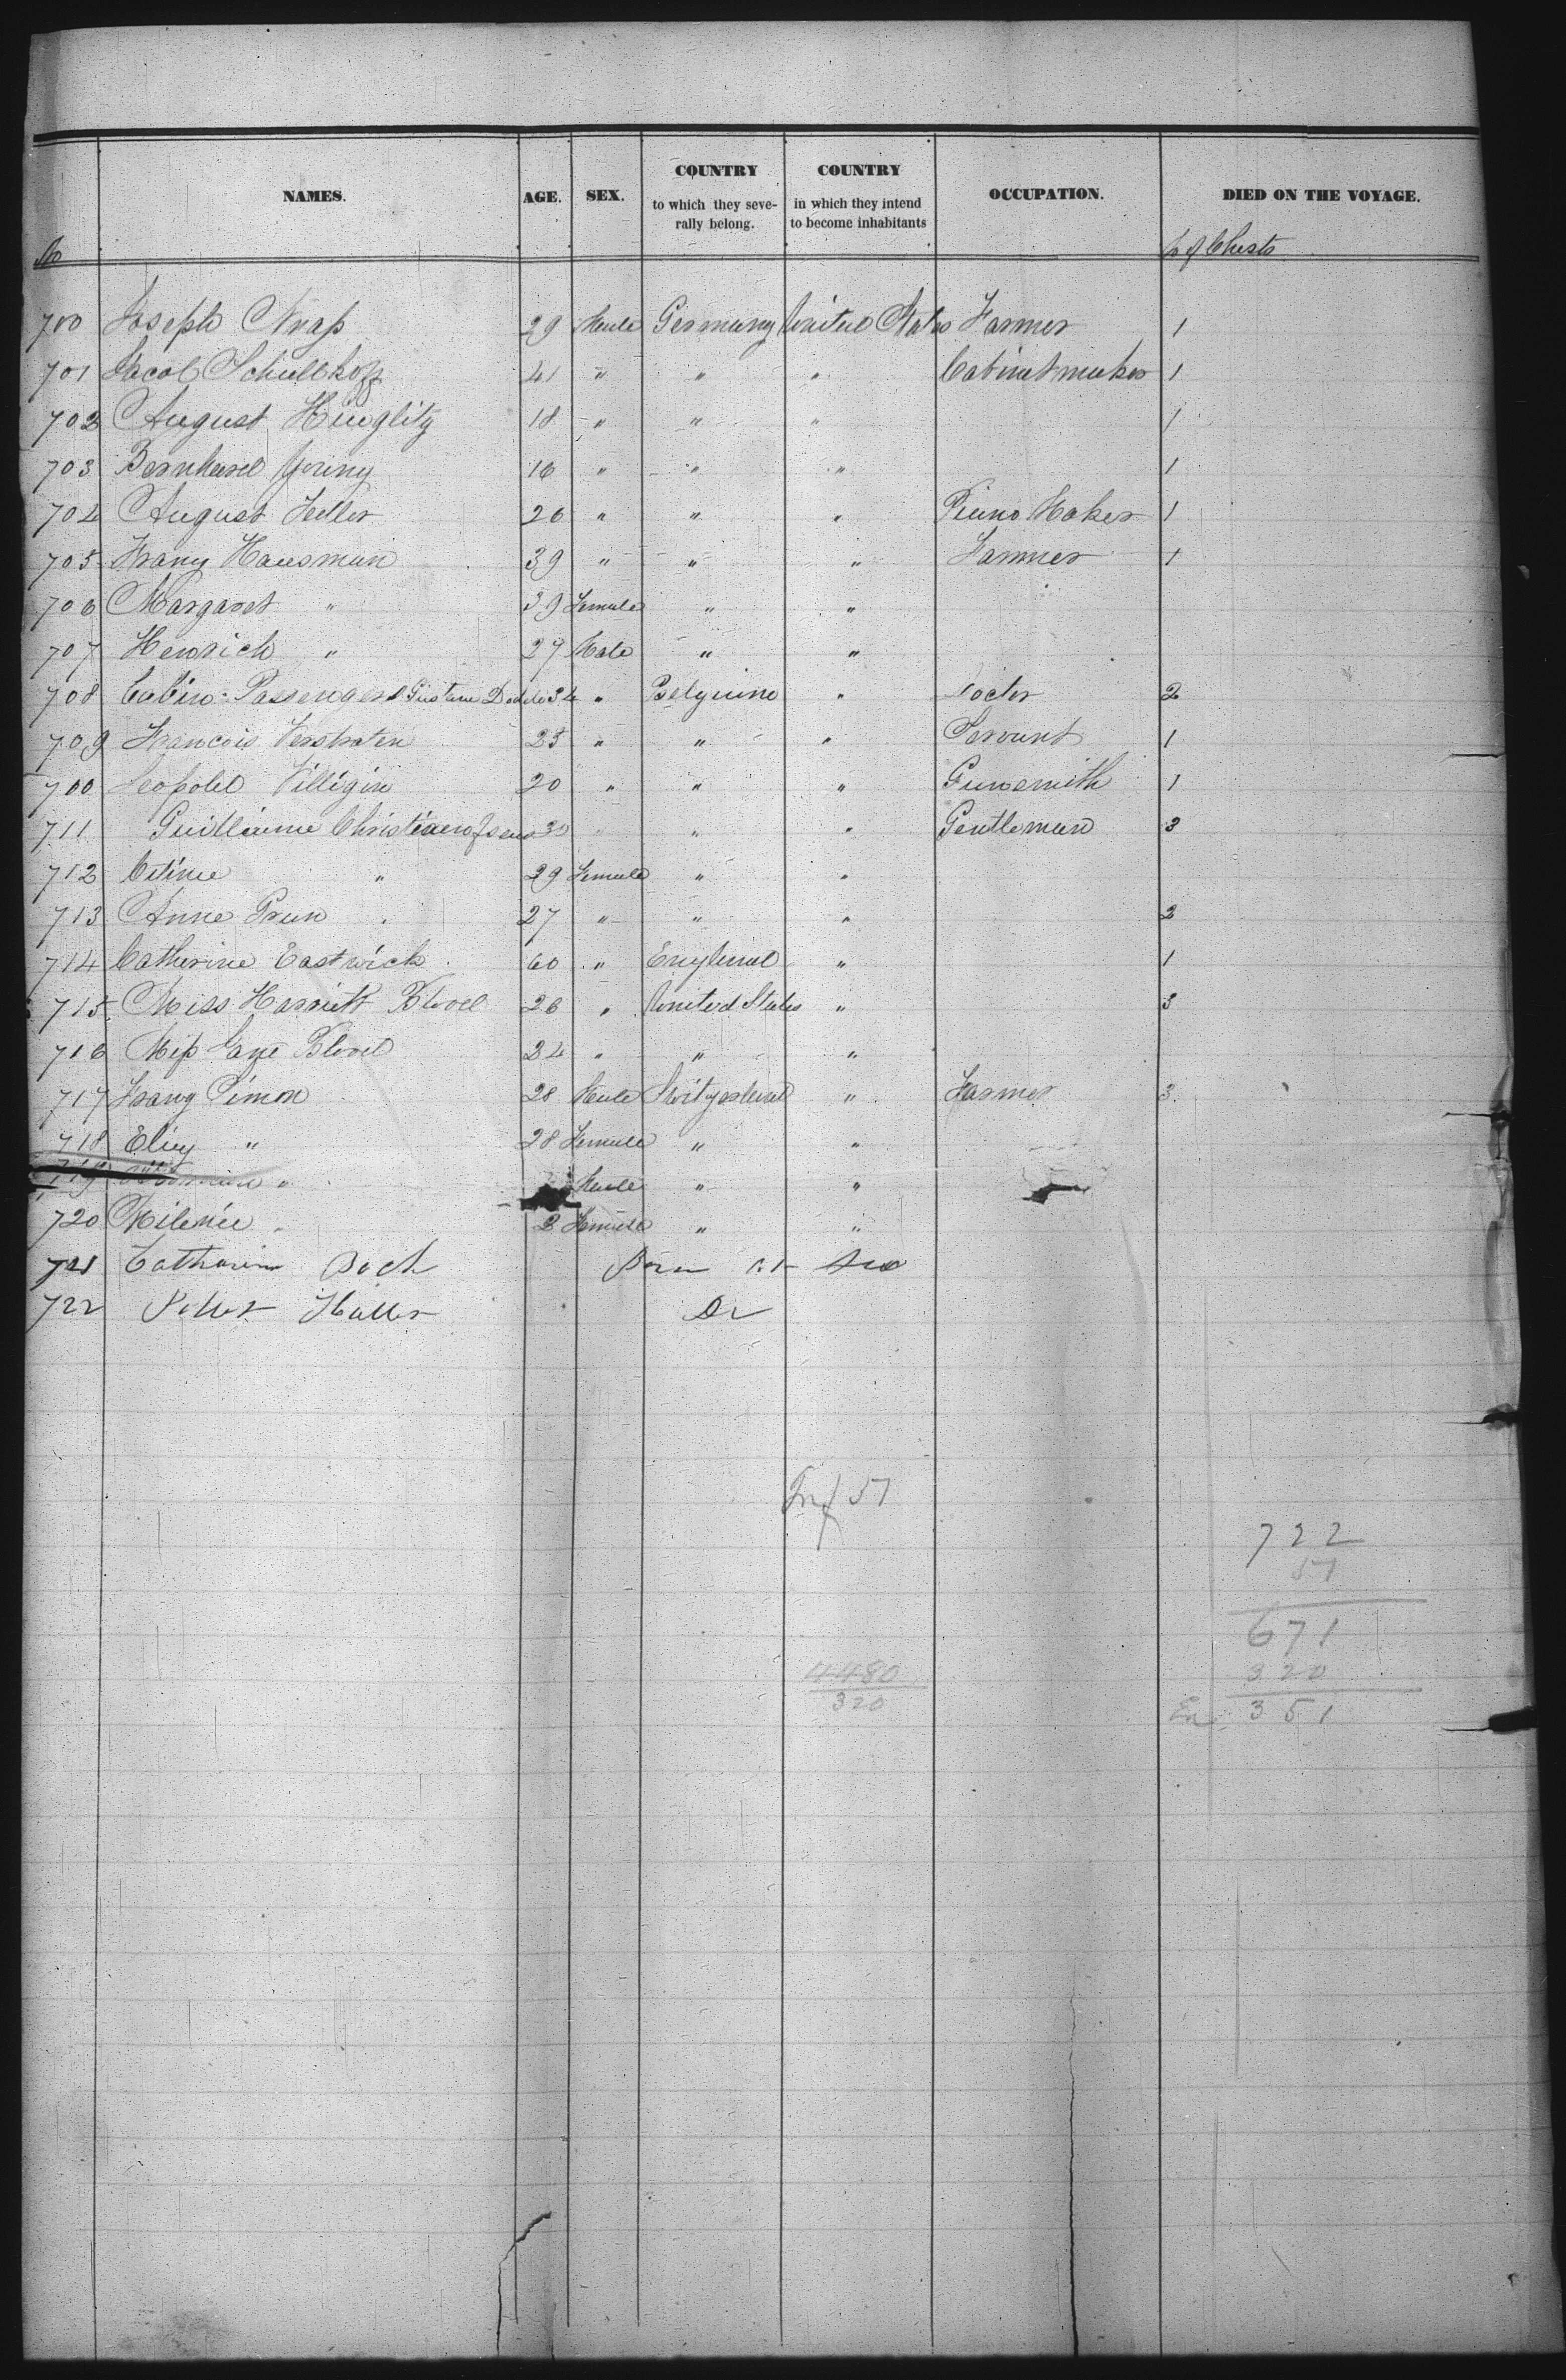 NAMES. AGE. SEX. COUNTRY to which they seve- rally belong. COUNTRY in which they intend to become inhabitants OCCUPATION. DIED ON THE VOYAGE.
No of Chests
700 Joseph Knap 29 Male Germany United States Farmer 1
701 Jacob Schullkopf 41 " " " Cabinetmaker 1
702 August Hinglitz 18 " " " 1
703 Bernhard Yoring 16 " " " 1
704 August Heller 26 " " " Piano Maker 1
705 Franz Hausman 39 " " " Farmer 1
706 Margaret " 39 Female " "
707 Henrich " 29 Male " "
708 Cabin Passengers Gustave 34 " Belguim " Doctor 2
709 Francois Verstraten 25 " " " Servant 1
700 Leopold Villigin 20 " " " Gunsmith 1
711 Guilliaume Christiaenssens 30 " " " Gentleman 3
712 " 29 Female " "
713 Anne Prun 27 " " " 2
714 Catherine Eastwick 60 " England " 1
715 Miss Harriett Blovel 26 " United States " 3
716 Miss Jane Blovel 24 " " "
717 Franz Simon 28 Male Switzerland " Farmer 3
718 Eliz " 28 Female " "
719 " Male " "
720 " 2 Female " "
721 Catharine Bach Born at Sea
722 Peter Haller Do
Inf 51
722
51
671
320
351
4480
320